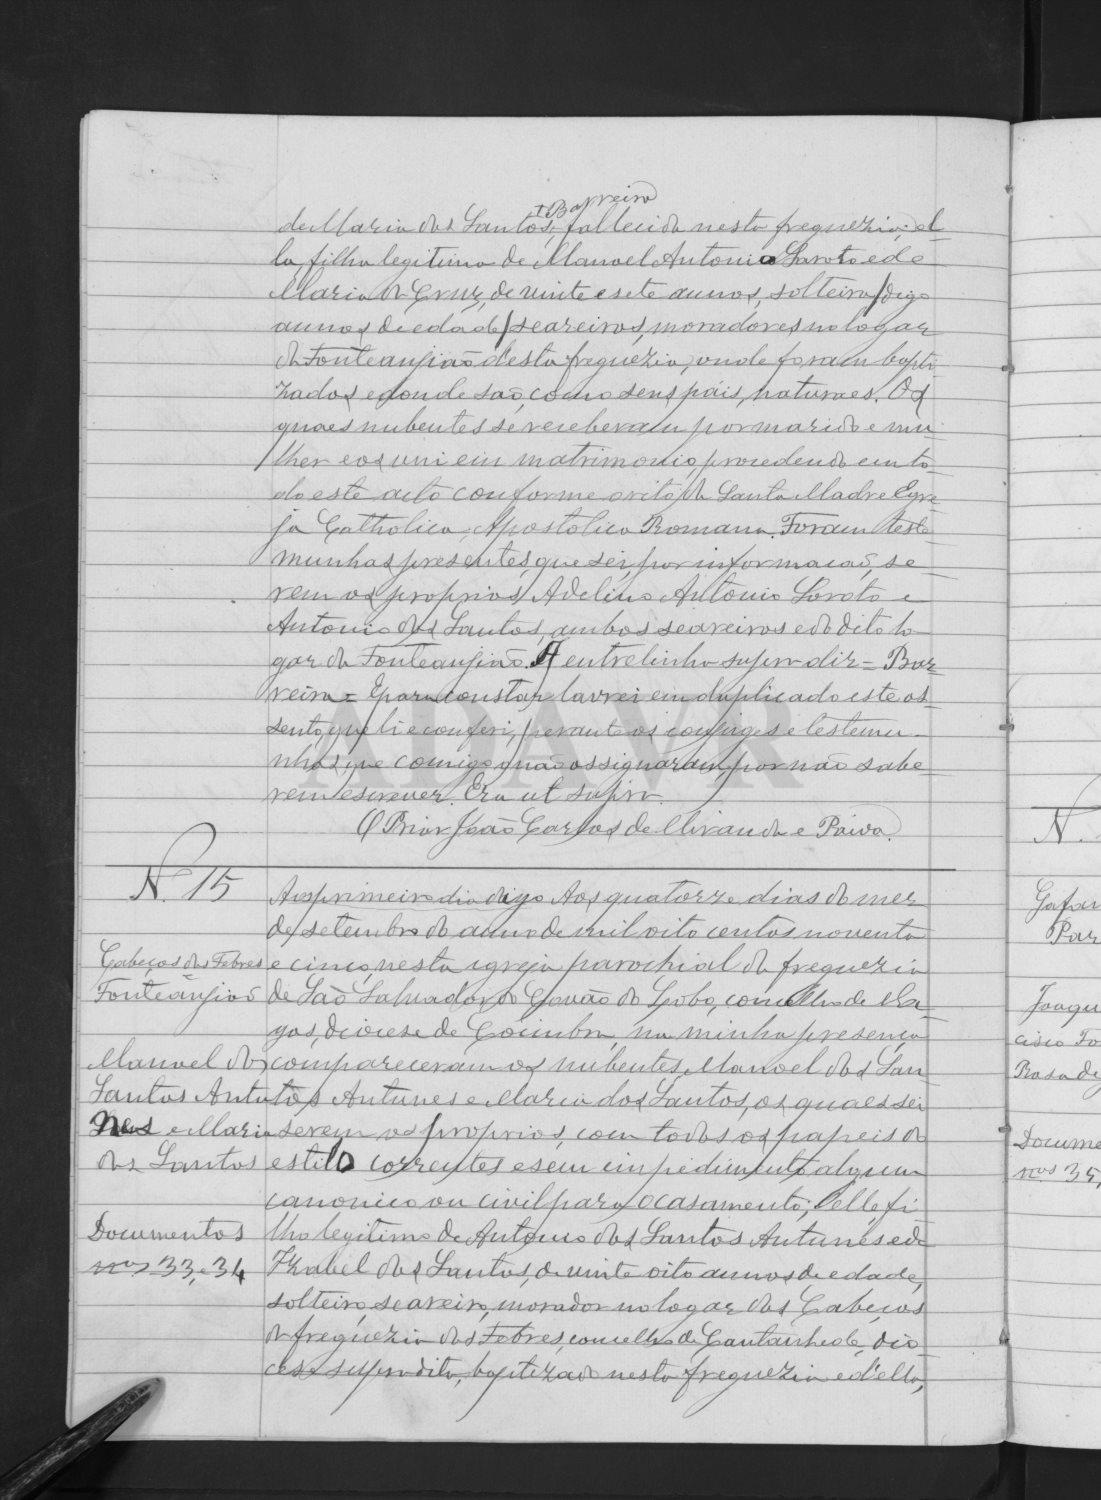 Barreira
de Maria dos Santos, fallecida nesta freguezia; el-
la filha legitima de Manoel Antonio Loroto e de
Maria da Cruz, de vinte e sete annos, solteira / digo
annos de edade / seareiros, moradores no logar
da Fonteangião d'esta freguezia, onde foram bapti-
zados e donde são, como seus páis, naturaes. Os
quaes nubentes se receberam por marido e mu-
lher e os uni em matrimonio, procedendo em to-
do este acto conforme o rito da Santa Madre Egre-
ja Catholica, Apostolica Romana. Foram teste-
munhas presentes, que sei, por informação, se-
rem os proprios, Adelino Antonio Loroto e
Antonio dos Santos, ambos seareiros e do dito lo-
gar da Fonteangião. A entrelinha supra diz = Bar-
reira = E para constar lavrei em duplicado este as-
sento, que li e conferi, perante os conjuges e testemu-
nhas, que comigo não assignaram, por não sabe-
rem escrever. Era ut supra.
O Prior João Carlos de Miranda e Paiva.
N. 15
Cabeços das Febres
e
Fonteangião
Manoel dos
Santos Antu
nes e Maria
dos Santos
Documentos
nos 33, e 34
Aos primeiro dia digo Aos quatorze dias do mez
de setembro do anno de mil oito centos noventa
e cinco, nesta igreja parochial da freguezia
de São Salvador do Covão do Lobo, concelho de Va-
gos, diocese de Coimbra, na minha presença
compareceram os nubentes Manoel dos San-
tos Antunes e Maria dos Santos, os quaes sei
serem os proprios, com todos os papeis do
estilo correntes e sem impedimento algum
canonico ou civil para o casamento; elle fi-
lho legitimo de Antonio dos Santos Antunes e de
Izabel dos Santos, de vinte oito annos de edade,
solteiro, seareiro, morador no logar dos Cabeços
da freguezia das Febres, concelho de Cantanhede, dio-
cese supra dita, baptizado nesta freguezia e d'ella,
ADAVR
N.
Joaqu
Rosa de
Docume
nos 35,